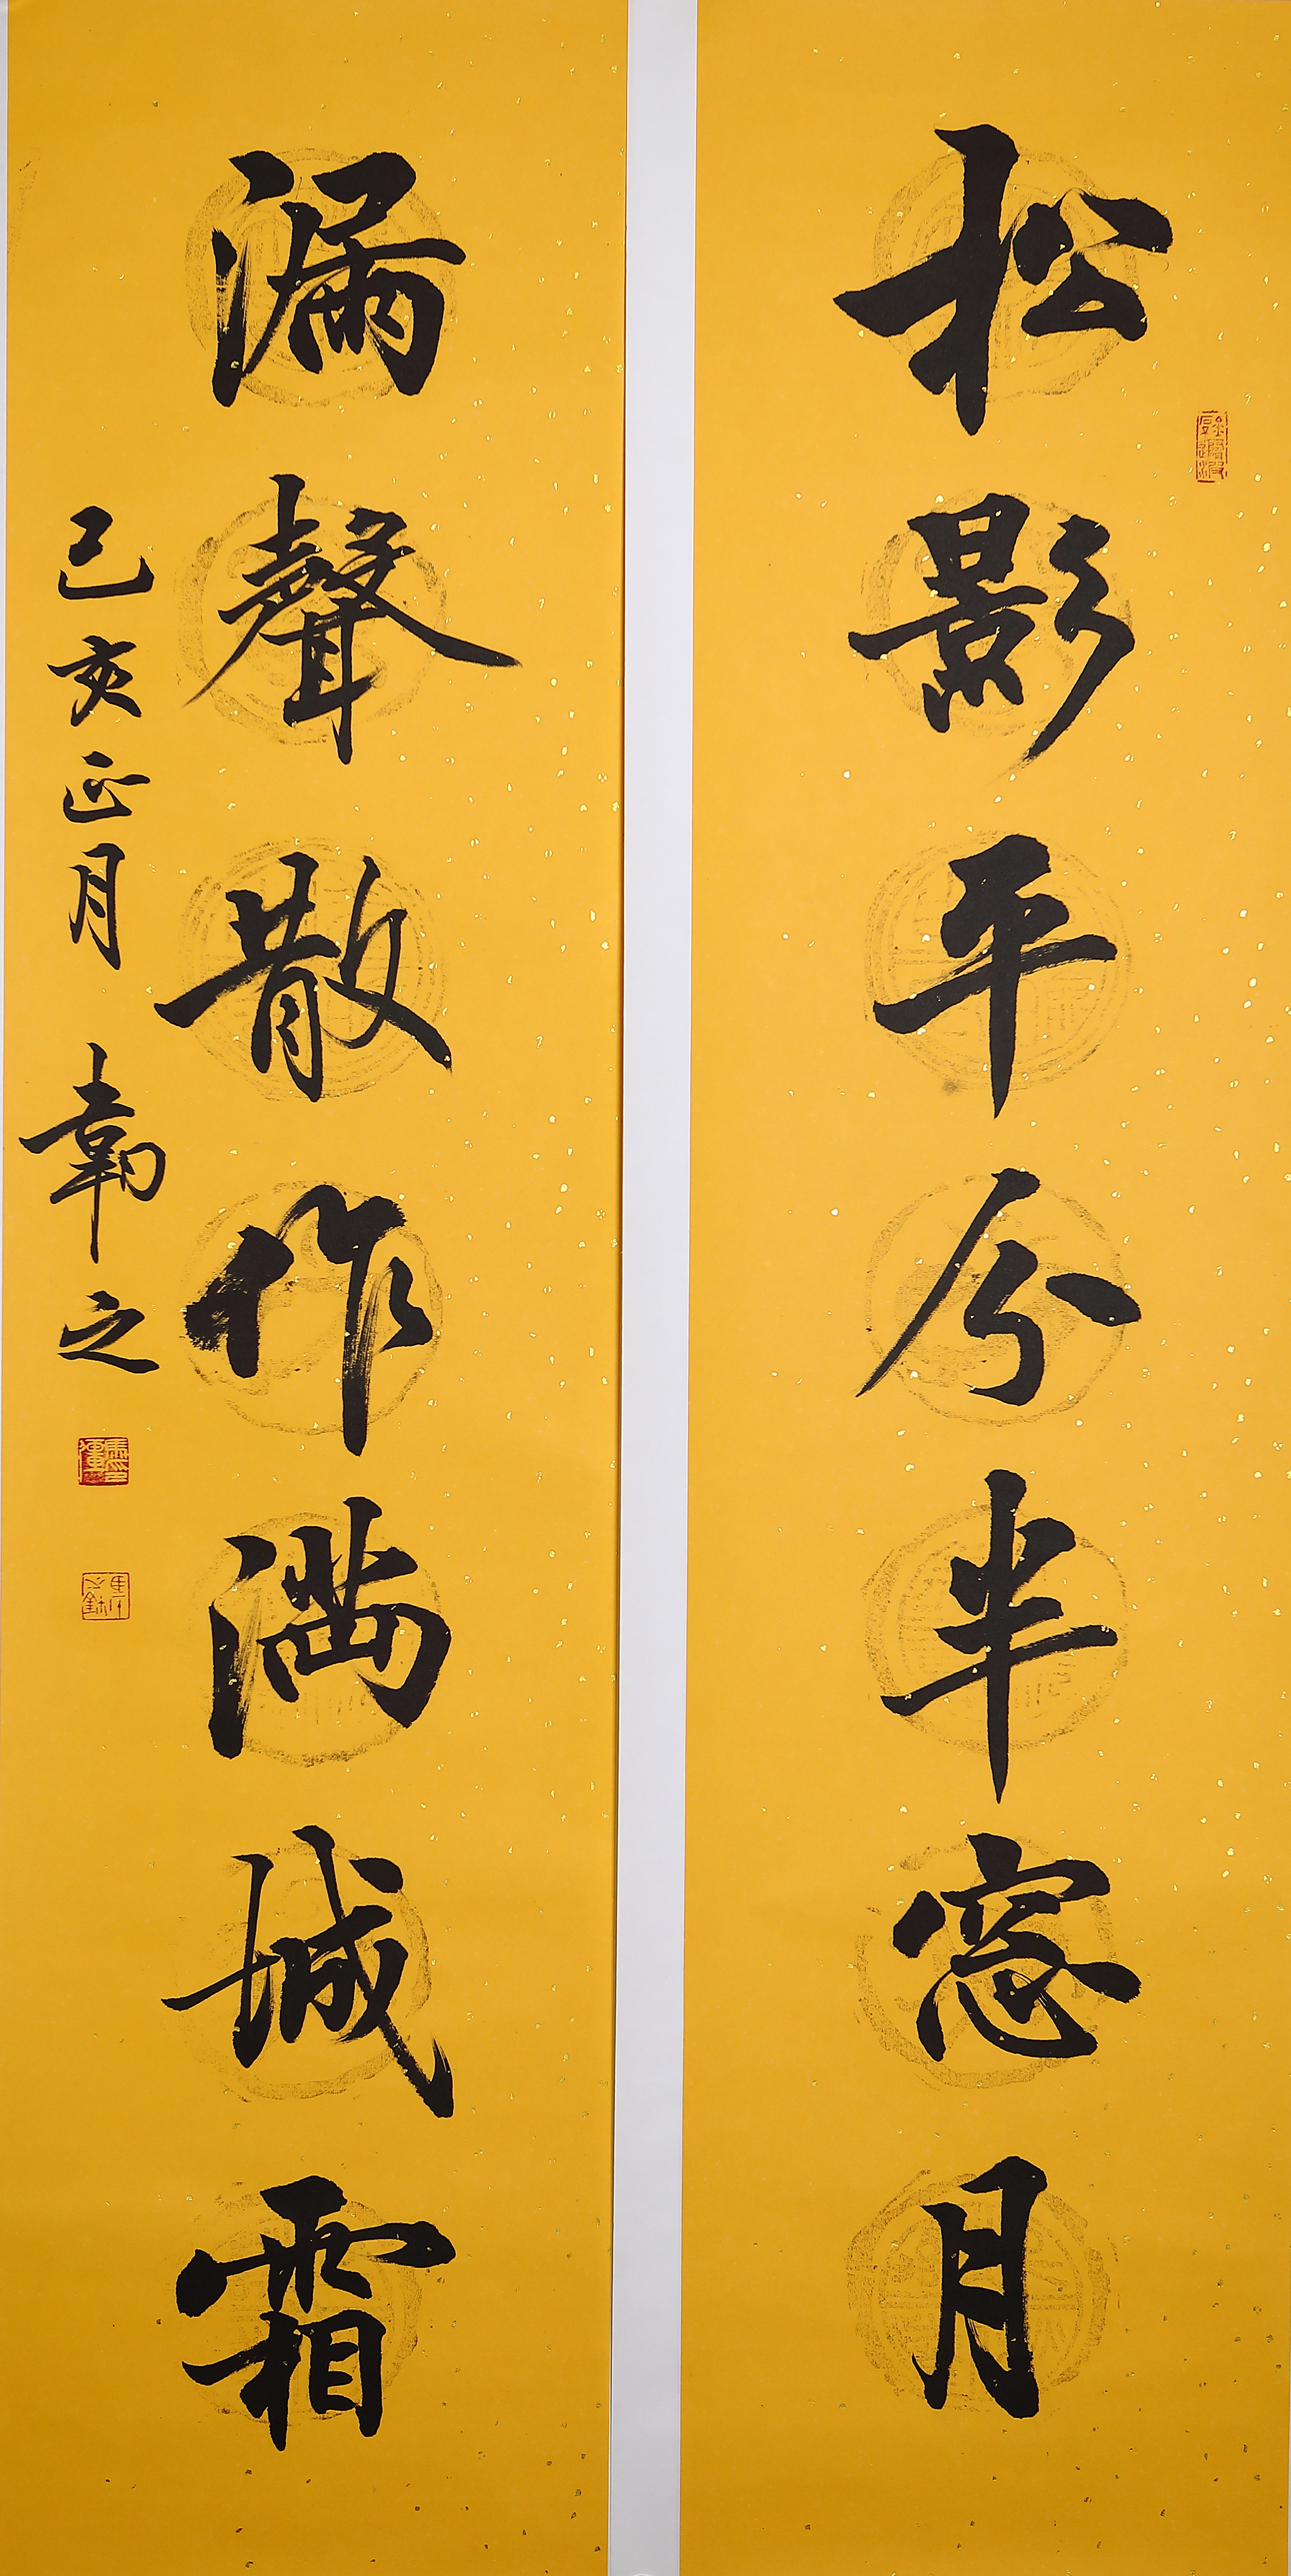 松影平分半窓月
漏聲散作滿城霜
己亥正月 韋之